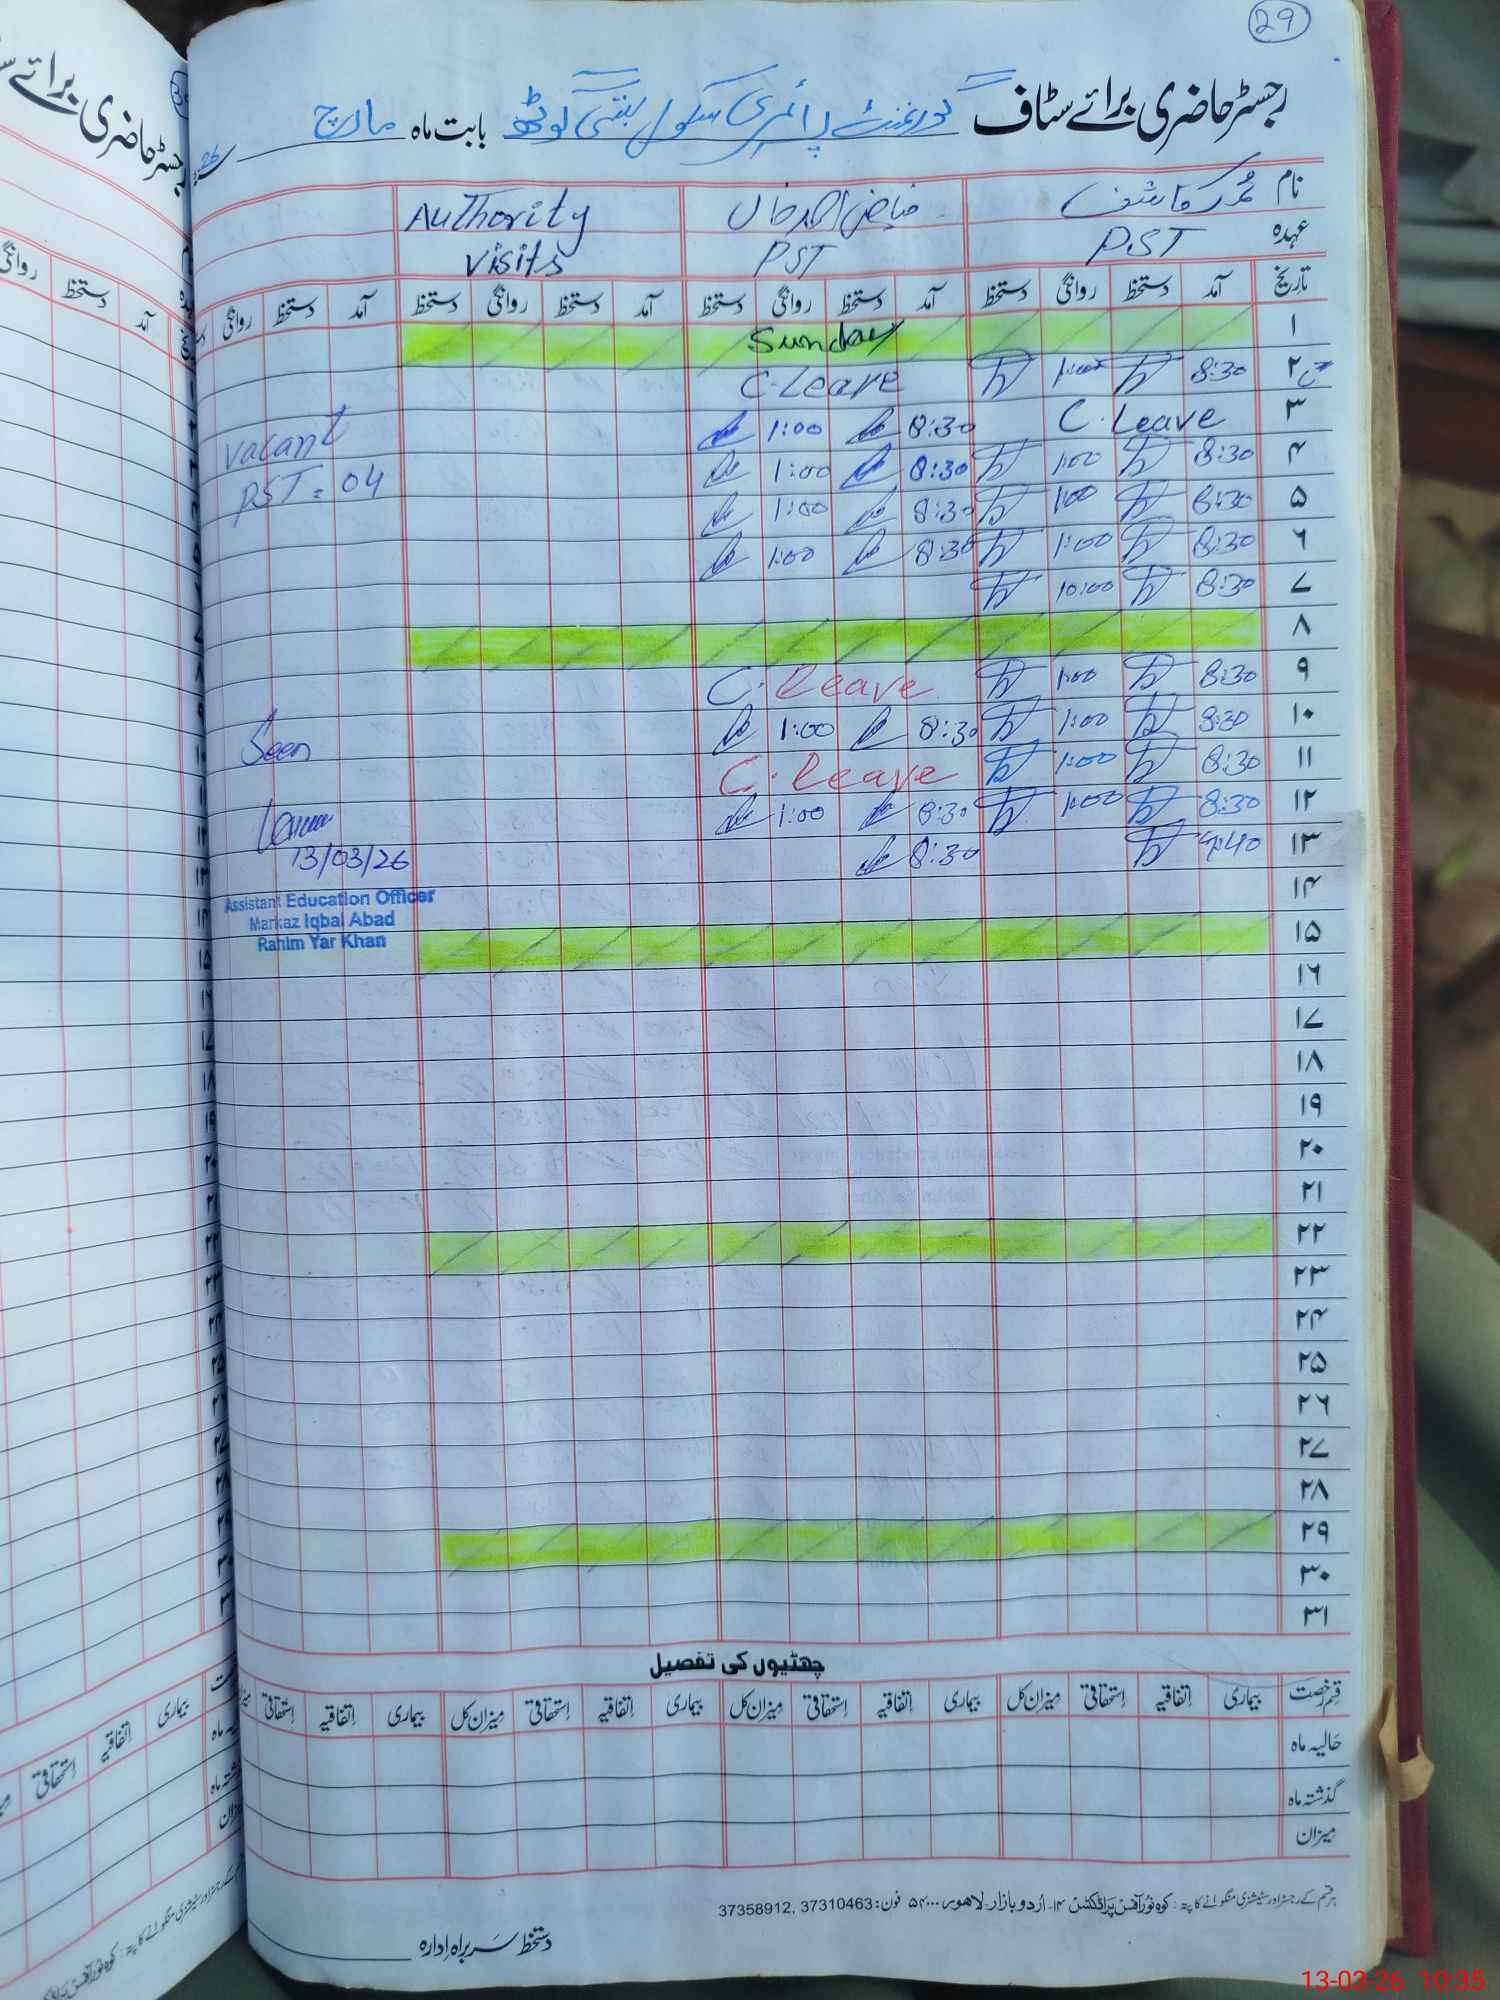 29
رجسٹر حاضری برائے سٹاف گورنمنٹ پرائمری سکول بستی لوٹھ بابت ماہ مارچ 26
نام محمد کاشف فیاض احمد خاں Authority
عہدہ PST PST Visits
تاریخ آمد دستخط روانگی دستخط آمد دستخط روانگی دستخط آمد دستخط روانگی دستخط آمد دستخط روانگی
۱ Sunday
۲ 8:30 1:00 C. Leave
۳ C. Leave 8:30 1:00
۴ 8:30 1:00 8:30 1:00
۵ 8:30 1:00 8:30 1:00
۶ 8:30 1:00 8:30 1:00
۷ 8:30 10:00
۸
۹ 8:30 1:00 C. Leave
۱۰ 8:30 1:00 8:30 1:00
۱۱ 8:30 1:00 C. Leave
۱۲ 8:30 1:00 8:30 1:00
۱۳ 9:40 8:30
۱۴
۱۵
۱۶
۱۷
۱۸
۱۹
۲۰
۲۱
۲۲
۲۳
۲۴
۲۵
۲۶
۲۷
۲۸
۲۹
۳۰
۳۱
Vacant
PST = 04
Seen
13/03/26
Assistant Education Officer
Markaz Iqbal Abad
Rahim Yar Khan
چھٹیوں کی تفصیل
قسم رخصت بیماری اتفاقیہ استحقاقی میزان کل بیماری اتفاقیہ استحقاقی میزان کل بیماری اتفاقیہ استحقاقی میزان کل بیماری اتفاقیہ استحقاقی
حالیہ ماہ
گذشتہ ماہ
میزان
ہر قسم کے رجسٹر اور سٹیشنری منگوانے کا پتہ: کوہ نور آفس پراڈکٹس ۱۴- اردو بازار- لاہور ۵۴۰۰۰ فون: 37310463 ,37358912
دستخط سربراہ ادارہ
13-03-26 10:35